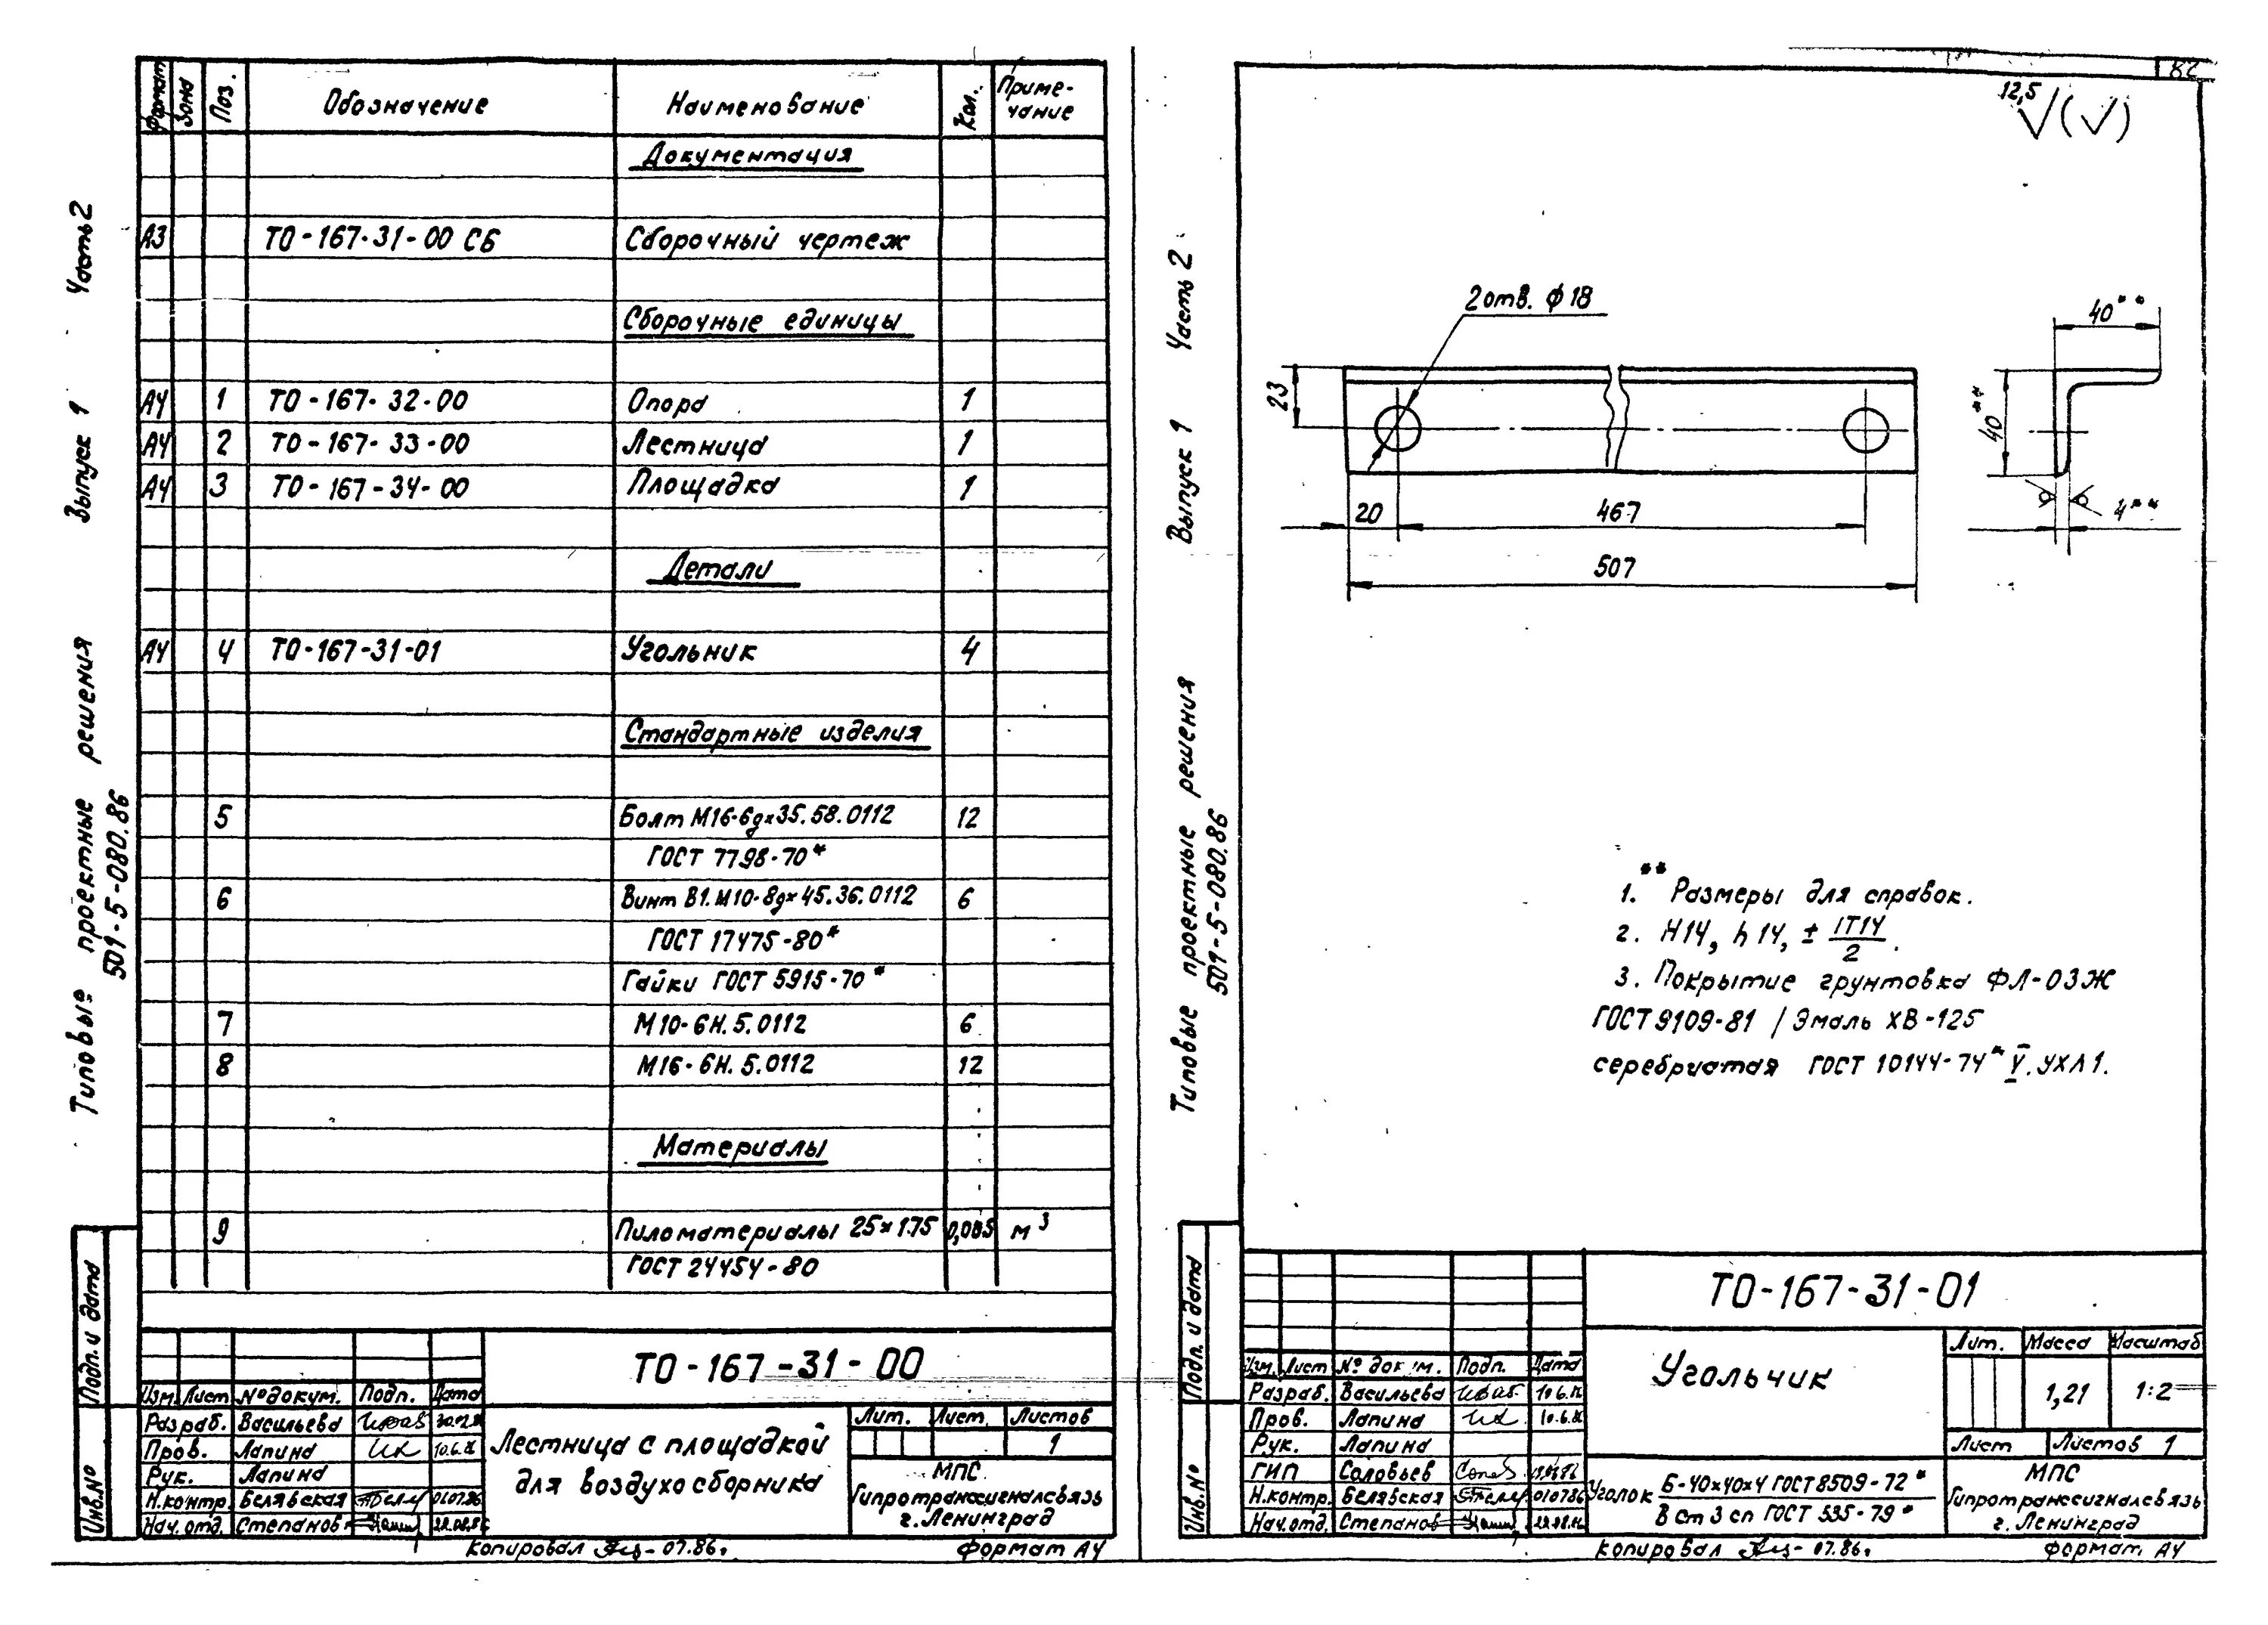 Типовые проектные решения
501-5-080.86
Выпуск 1 Часть 2
Формат Зона Поз. Обозначение Наименование Кол. Приме-
чание
Документация
А3 ТО-167-31-00 СБ Сборочный чертеж
Сборочные единицы
А4 1 ТО-167-32-00 Опора 1
А4 2 ТО-167-33-00 Лестница 1
А4 3 ТО-167-34-00 Площадка 1
Детали
А4 4 ТО-167-31-01 Угольник 4
Стандартные изделия
5 Болт М16-6g×35.58.0112 12
ГОСТ 7798-70*
6 Винт В1.М10-8g×45.36.0112 6
ГОСТ 17475-80*
Гайки ГОСТ 5915-70*
7 М10-6Н.5.0112 6
8 М16-6Н.5.0112 12
Материалы
9 Пиломатериалы 25×175 м³
ГОСТ 24454-80
Подп. и дата
Инв.№
ТО-167-31-00
Изм. Лист № докум. Подп. Дата
Разраб. Васильева
Пров. Лапина 10.6.86
Рук. Лапина
Н.контр. Белявская 01.07.86
Нач.отд. Степанов 22.08.86
Лестница с площадкой
для воздухосборника
Лит. Лист Листов
1
МПС
Гипротранссигналсвязь
г. Ленинград
Копировал 07.86г.
Формат А4
82
12,5 (√)
Типовые проектные решения
501-5-080.86
Выпуск 1 Часть 2
2 отв. ϕ18
23
20
467
507
40**
40**
4**
1. ** Размеры для справок.
2. Н14, h14, ± IT14/2.
3. Покрытие грунтовка ФЛ-03Ж
ГОСТ 9109-81 / Эмаль ХВ-125
серебристая ГОСТ 10144-74* V. УХЛ1.
Подп. и дата
Инв.№
ТО-167-31-01
Изм. Лист № докум. Подп. Дата
Разраб. Васильева 10.6.86
Пров. Лапина 10.6.86
Рук. Лапина
ГИП Соловьев
Н.контр. Белявская 010786
Нач.отд. Степанов 22.08.86
Угольчик
Лит. Масса Масштаб
1,21 1:2
Лист Листов 1
Уголок Б-40×40×4 ГОСТ 8509-72*
В ст 3 сп ГОСТ 535-79*
МПС
Гипротранссигналсвязь
г. Ленинград
Копировал 07.86г.
Формат А4